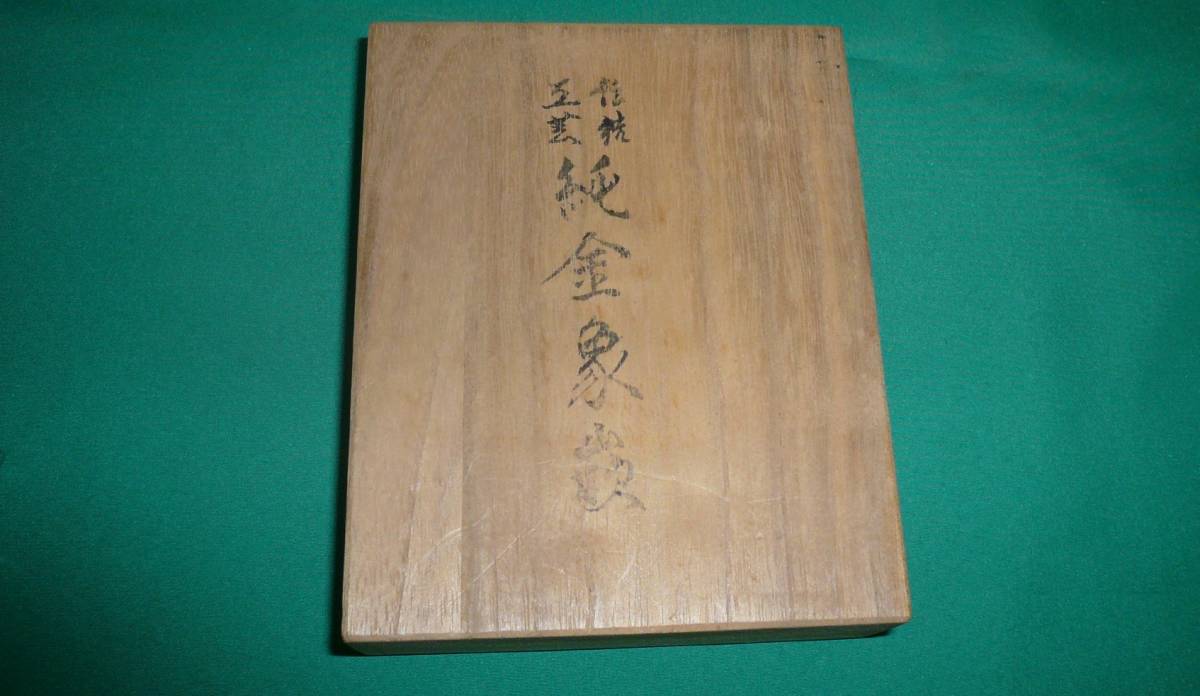 伝統
工芸
純金象嵌